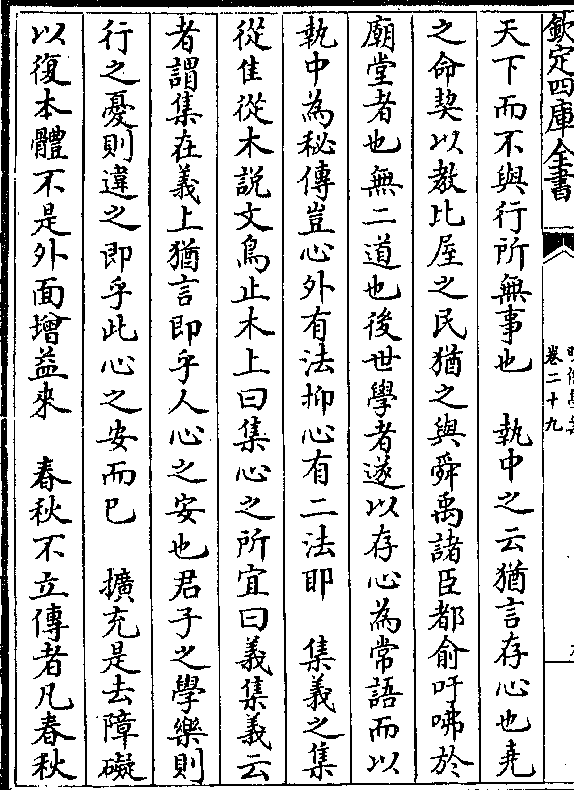 欽定四庫全書
卷二十九
天下而不與行所無事也　執中之云猶言存心也堯
之命契以教比屋之民猶之與舜禹諸臣都俞吁咈於
廟堂者也無二道也後世學者遂以存心為常語而以
執中為秘傳豈心外有法抑心有二法耶　集義之集
從隹從木說文鳥止木上曰集心之所宜曰義集義云
者謂集在義上猶言即乎人心之安也君子之學樂則
行之憂則違之即乎此心之安而已　擴充是去障礙
以復本體不是外面增益來　春秋不立傳者凡春秋